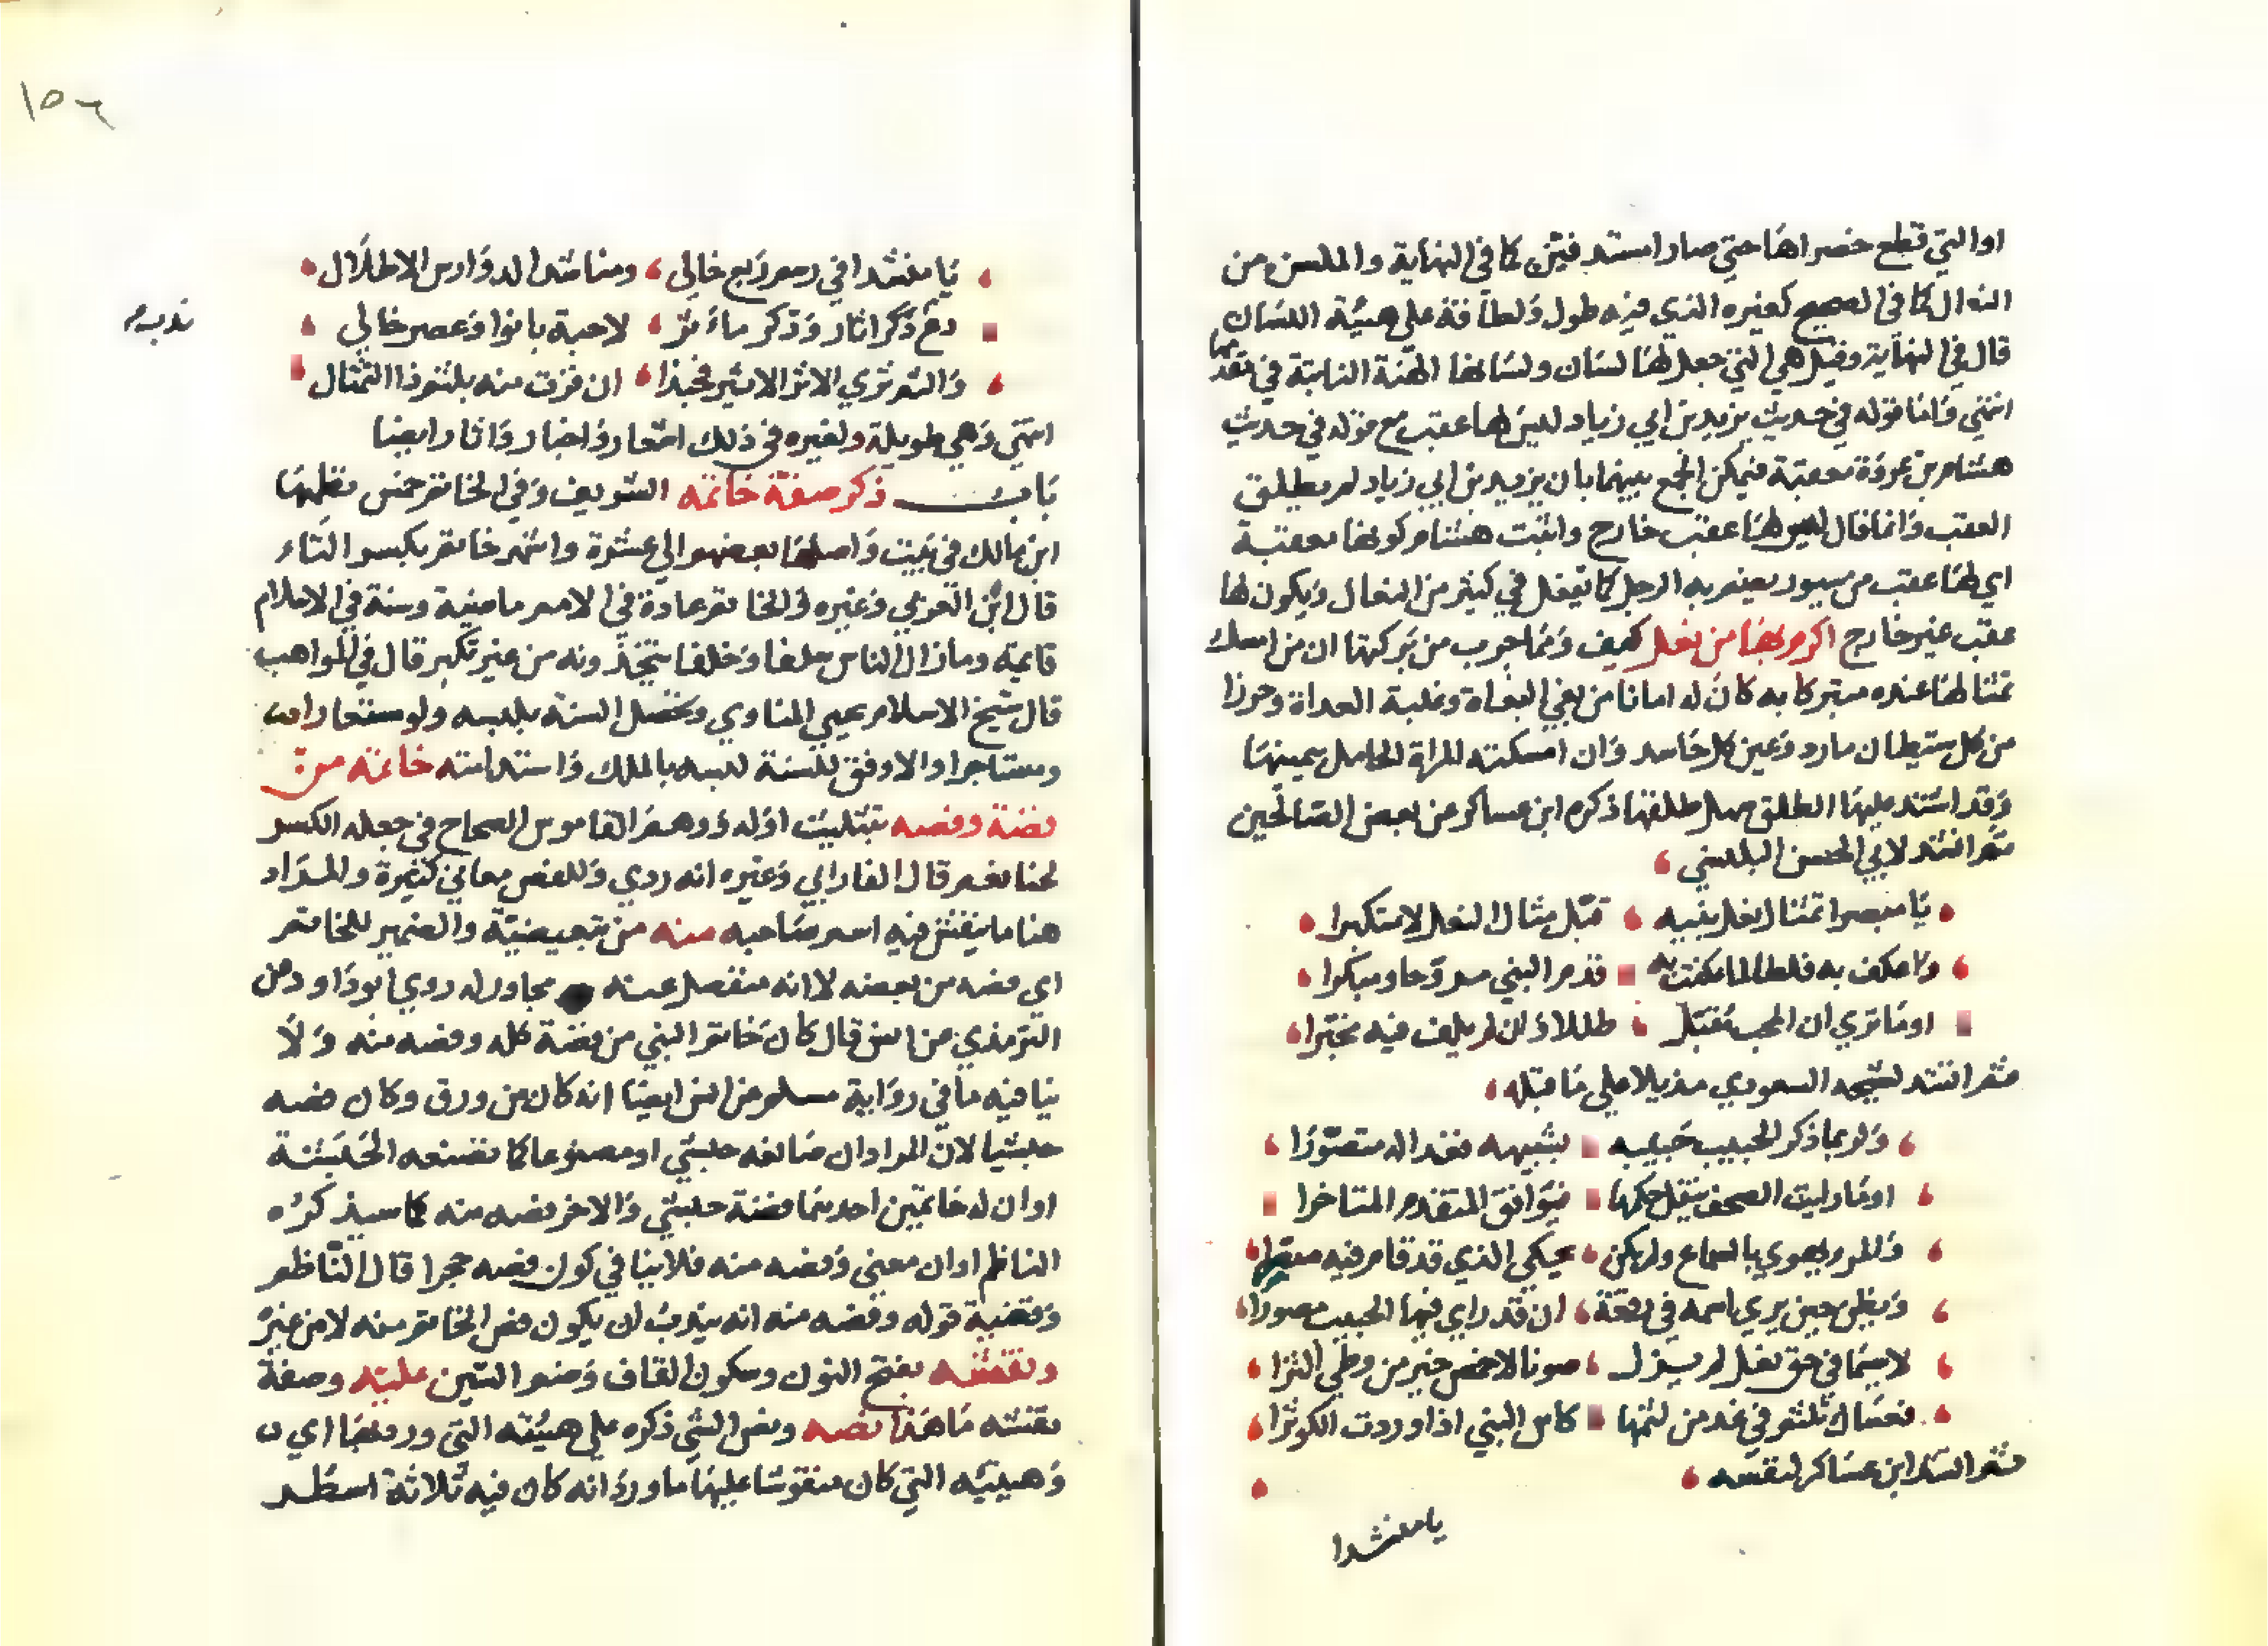 او التي قطع خصراها حتي صارا مستدقين كما في النهاية والملسن من
النعال كما في الصحيح كغيره الذي فيه طول ولطافة علي هيئة اللسان
قال في النهاية وقيل هي التي جعل لها لسان ولسانها الهنة الناتئة في مقدمها
انتهي واما قوله في حديث يزيد بن ابي زياد ليس لها عقب مع قوله في حديث
هشام بن عروة معقبة فيمكن الجمع بينهما بان يزيد بن ابي زياد لم يطلق
العقب وانما قال ليس لها عقب خارج واثبت هشام كونها معقبة
اي لها عقب من سيور يضم به الرجل كما يفعل في كثير من النعال ويكون لها
عقب غير خارج اكرم بها من نعل كيف ومما جرب من بركتها ان من امسك
تمثالها عنده متبركا به كان له امانا من بغي البغاة وغلبة العداة وحرزا
من كل شيطان مارد وعين كل حاسد وان امسكته المراة الحامل بيمينها
وقد اشتد عليها الطلق سهل طلقها ذكره ابن عساكر عن بعض الصالحين
ثم انشد لابي الحسن البلنسي
يا مبصرا تمثال نعل نبيه قبل مثال النعل لا متكبرا
واعكف به فلطالما عكفت به قدم النبي مروحا ومبكرا
اوما تري ان المحب مقبل طللا وان لم يلف فيه مخبرا
ثم انشد لشيخه السعودي مذيلا علي ما قبله
ولربما ذكر الحبيب حبيبه بشبيهه فغدا له متصورا
اوما رايت الصحف ينقل حكمها فيوافق المتقدم المتاخرا
والمرء يهوي بالسماع ولم يكن يحكي الذي قد قام فيه مقررا
ويظن حين يري باسمه في رقعة ان قد راي فيها الحبيب مصورا
لاسيما في حق نعل لم يزل صونا لاخمص خير من وطئ الثرا
فعساك تلثم في غد من لثمها كاس النبي اذا وردت الكوثرا
ثم انشد ابن عساكر لنفسه
يا منشدا
١٥٦
يا منشدا في رسم ربع خالي ومناشدا لدوارس الاطلال
دع ذكر اثار وذكر ماثر لاحبة بانوا وعصر خالي
والثم ثري الاثر الاثير فحبذا ان فزت منه بلثم ذا التمثال
انتهي وهي طويلة ولغيره في ذلك اشعار واخبار واثار ايضا
باب ذكر صفة خاتمه الشريف وفي الخاتم خمس نظمها
ابن مالك في بيت واصلها بعضهم الي عشرة واشهر خاتم بكسر التاء
قال ابن العربي وغيره والخاتم عادة في الامم ماضية وسنة في الاسلام
قايمة وما زال الناس سلفا وخلفا يتخذونه من غير نكير قال في المواهب
قال شيخ الاسلام يحيي المناوي وتحصل السنة بلبسه ولو مستعارا او
ومستاجرا والاوفق للسنة لبسه بالملك واستدامته خاتمه من
فضة وفصه بتثليث اوله ووهم القاموس الصحاح في جعله الكسر
لحنا نعم قال الفارابي وغيره انه ردي وللفص معاني كثيرة والمراد
هنا ما ينقش فيه اسم صاحبه منه من تبعيضية والضمير للخاتم
اي فصه من بعضه لا انه منفصل عنه مجاور له روي ابو داود عن
الترمذي عن انس قال كان خاتم النبي من فضة كله وفصه منه ولا
ينافيه ما في رواية مسلم عن انس ايضا انه كان من ورق وكان فصه
حبشيا لان المراد ان صانعه حبشي او مصنوعا كما تصنعه الحبشة
او ان له خاتمين احدهما فصه حبشي والاخر فصه منه كما سيذكره
الناظم او ان معني وفصه منه فلا ينافي كون فصه حجرا قال الناظم
وقضية قوله وفصه منه انه يندب ان يكون فص الخاتم منه لا من غيره
ونقشه بفتح النون وسكون القاف وضم الشين عليه وصفة
نقشته ما هذا نصه ونص الشي ذكره علي هيئته التي ورد بها اي
وهيئته التي كان منقوشا عليها ما ورد انه كان فيه ثلاثة اسطر